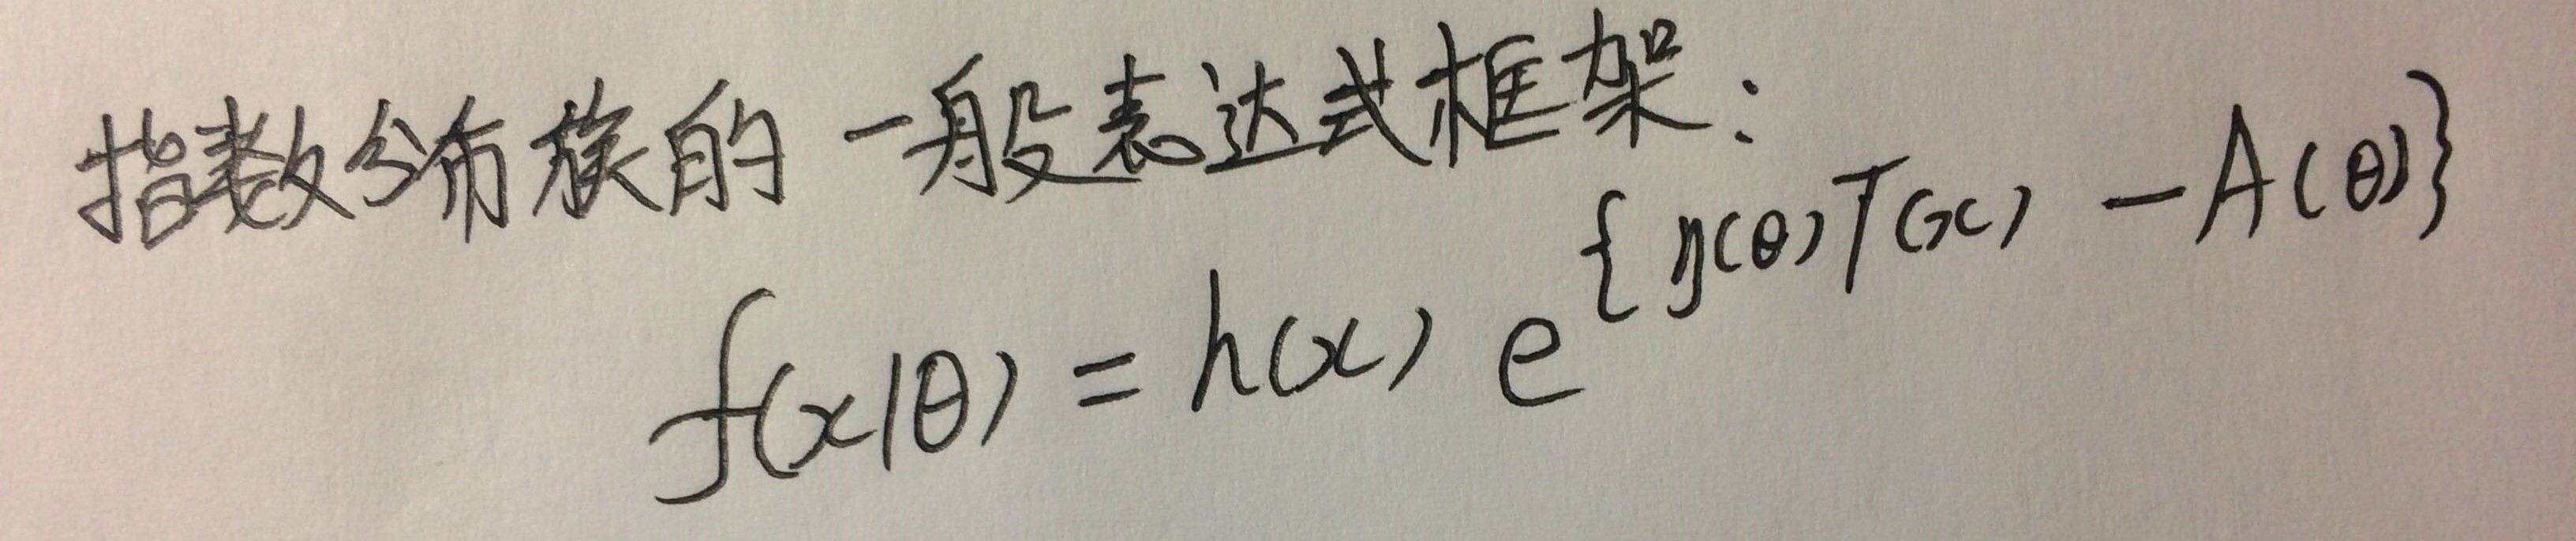 指数分布族的一般表达式框架:
f(x|θ) = h(x) e^{η(θ)T(x) - A(θ)}